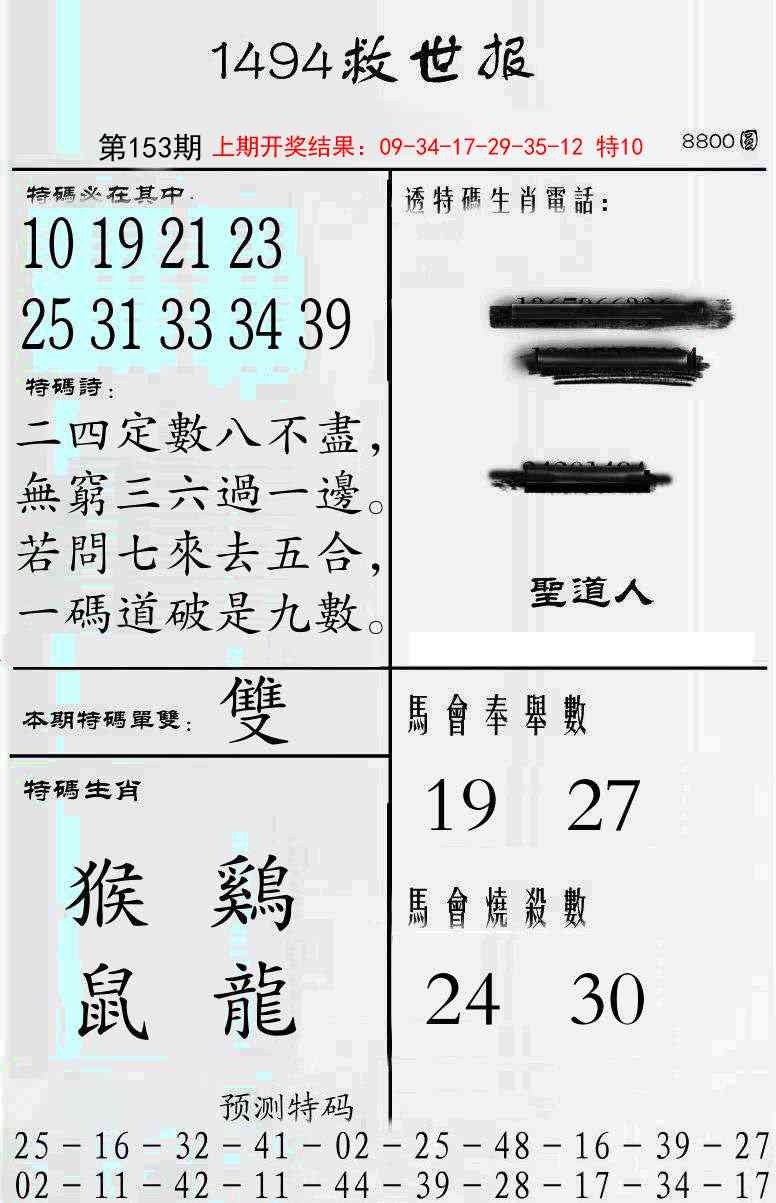 1494救世报
第153期 上期开奖结果：09-34-17-29-35-12 特10 8800圓
特碼必在其中.
10 19 21 23
25 31 33 34 39
特碼詩：
二四定數八不盡，
無窮三六過一邊。
若問七來去五合，
一碼道破是九數。
透特碼生肖電話：
聖道人
本期特碼單雙：雙
特碼生肖
猴 鷄
鼠 龍
馬會奉舉數
19 27
馬會燒殺數
24 30
预测特码
25-16-32-41-02-25-48-16-39-27
02-11-42-11-44-39-28-17-34-17